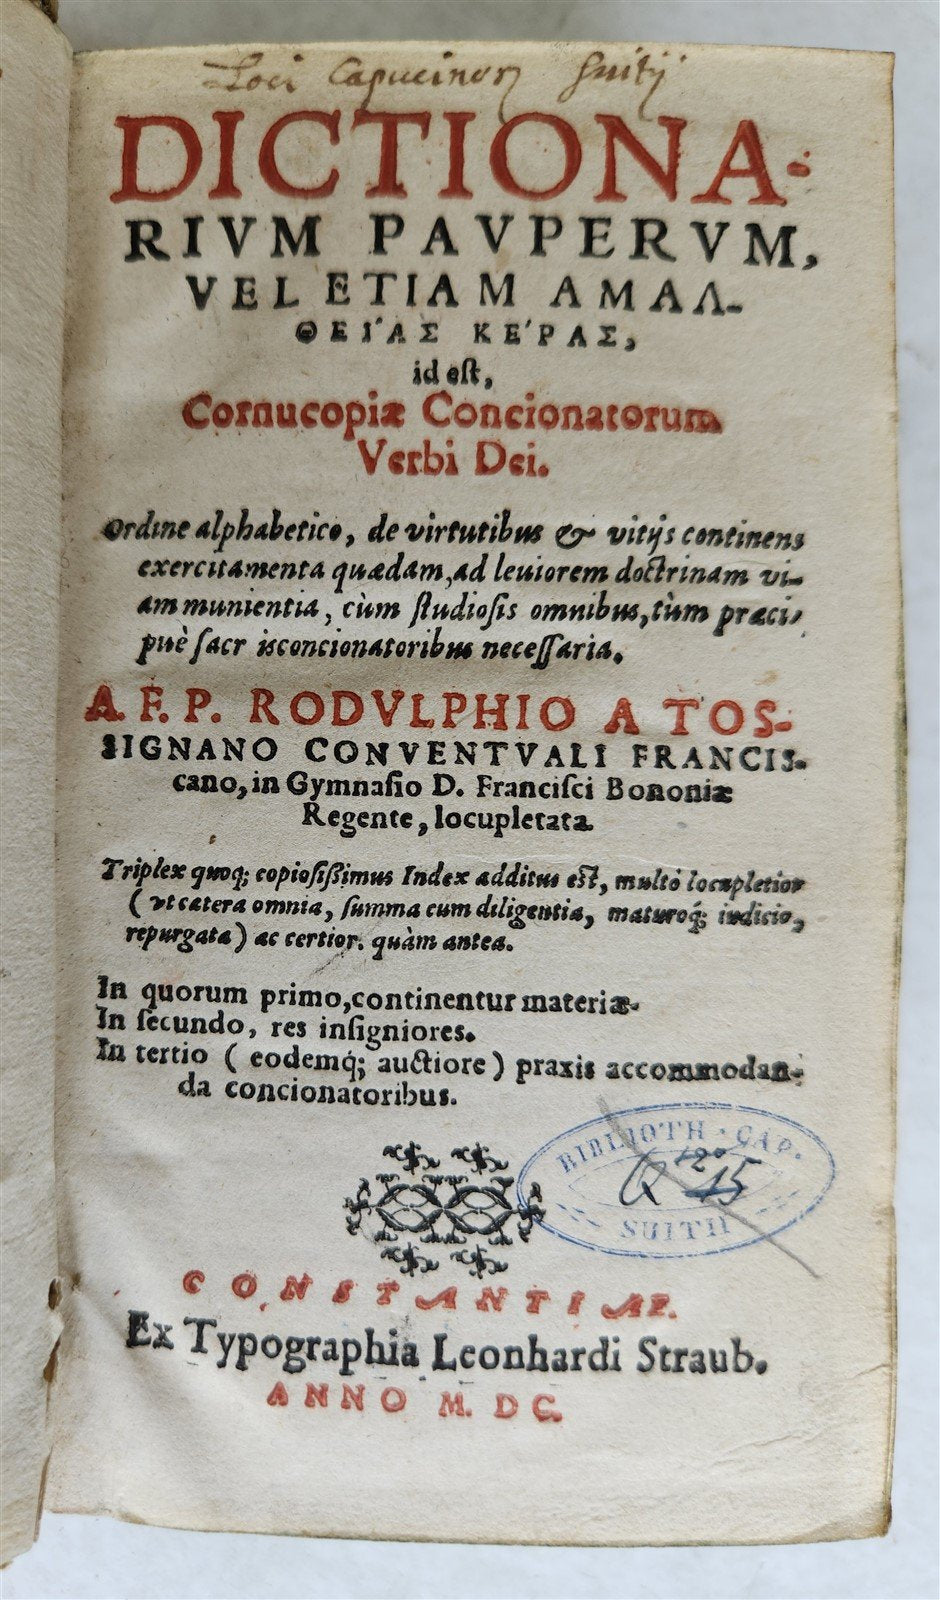 Loci Capucinorz Suitij
DICTIONA-
RIVM PAVPERVM,
VEL ETIAM ΑΜΑΛ-
ΘΕΊΑΣ ΚΈΡΑΣ,
id eſt,
Cornucopiæ Concionatorum
Verbi Dei.
Ordine alphabetico, de virtutibus & vitijs continens
exercitamenta quædam, ad leuiorem doctrinam vi-
am munientia, cùm ſtudioſis omnibus, tùm præci-
puè ſacr isconcionatoribus neceſſaria.
A. F. P. RODVLPHIO A TOS-
SIGNANO CONVENTVALI FRANCIS-
cano, in Gymnaſio D. Franciſci Bononiæ
Regente, locupletata.
Triplex quoq; copioſißimus Index additus eſt, multò locupletior
(vt cætera omnia, ſumma cum diligentia, maturoq́; iudicio,
repurgata) ac certior. quàm antea.
In quorum primo, continentur materiæ.
In ſecundo, res inſigniores.
In tertio (eodemq́; auctiore) praxis accommodan-
da concionatoribus.
BIBLIOTH. CAP.
12º
Q 15
SUITII
CONSTANTIAE.
Ex Typographia Leonhardi Straub.
ANNO M. DC.